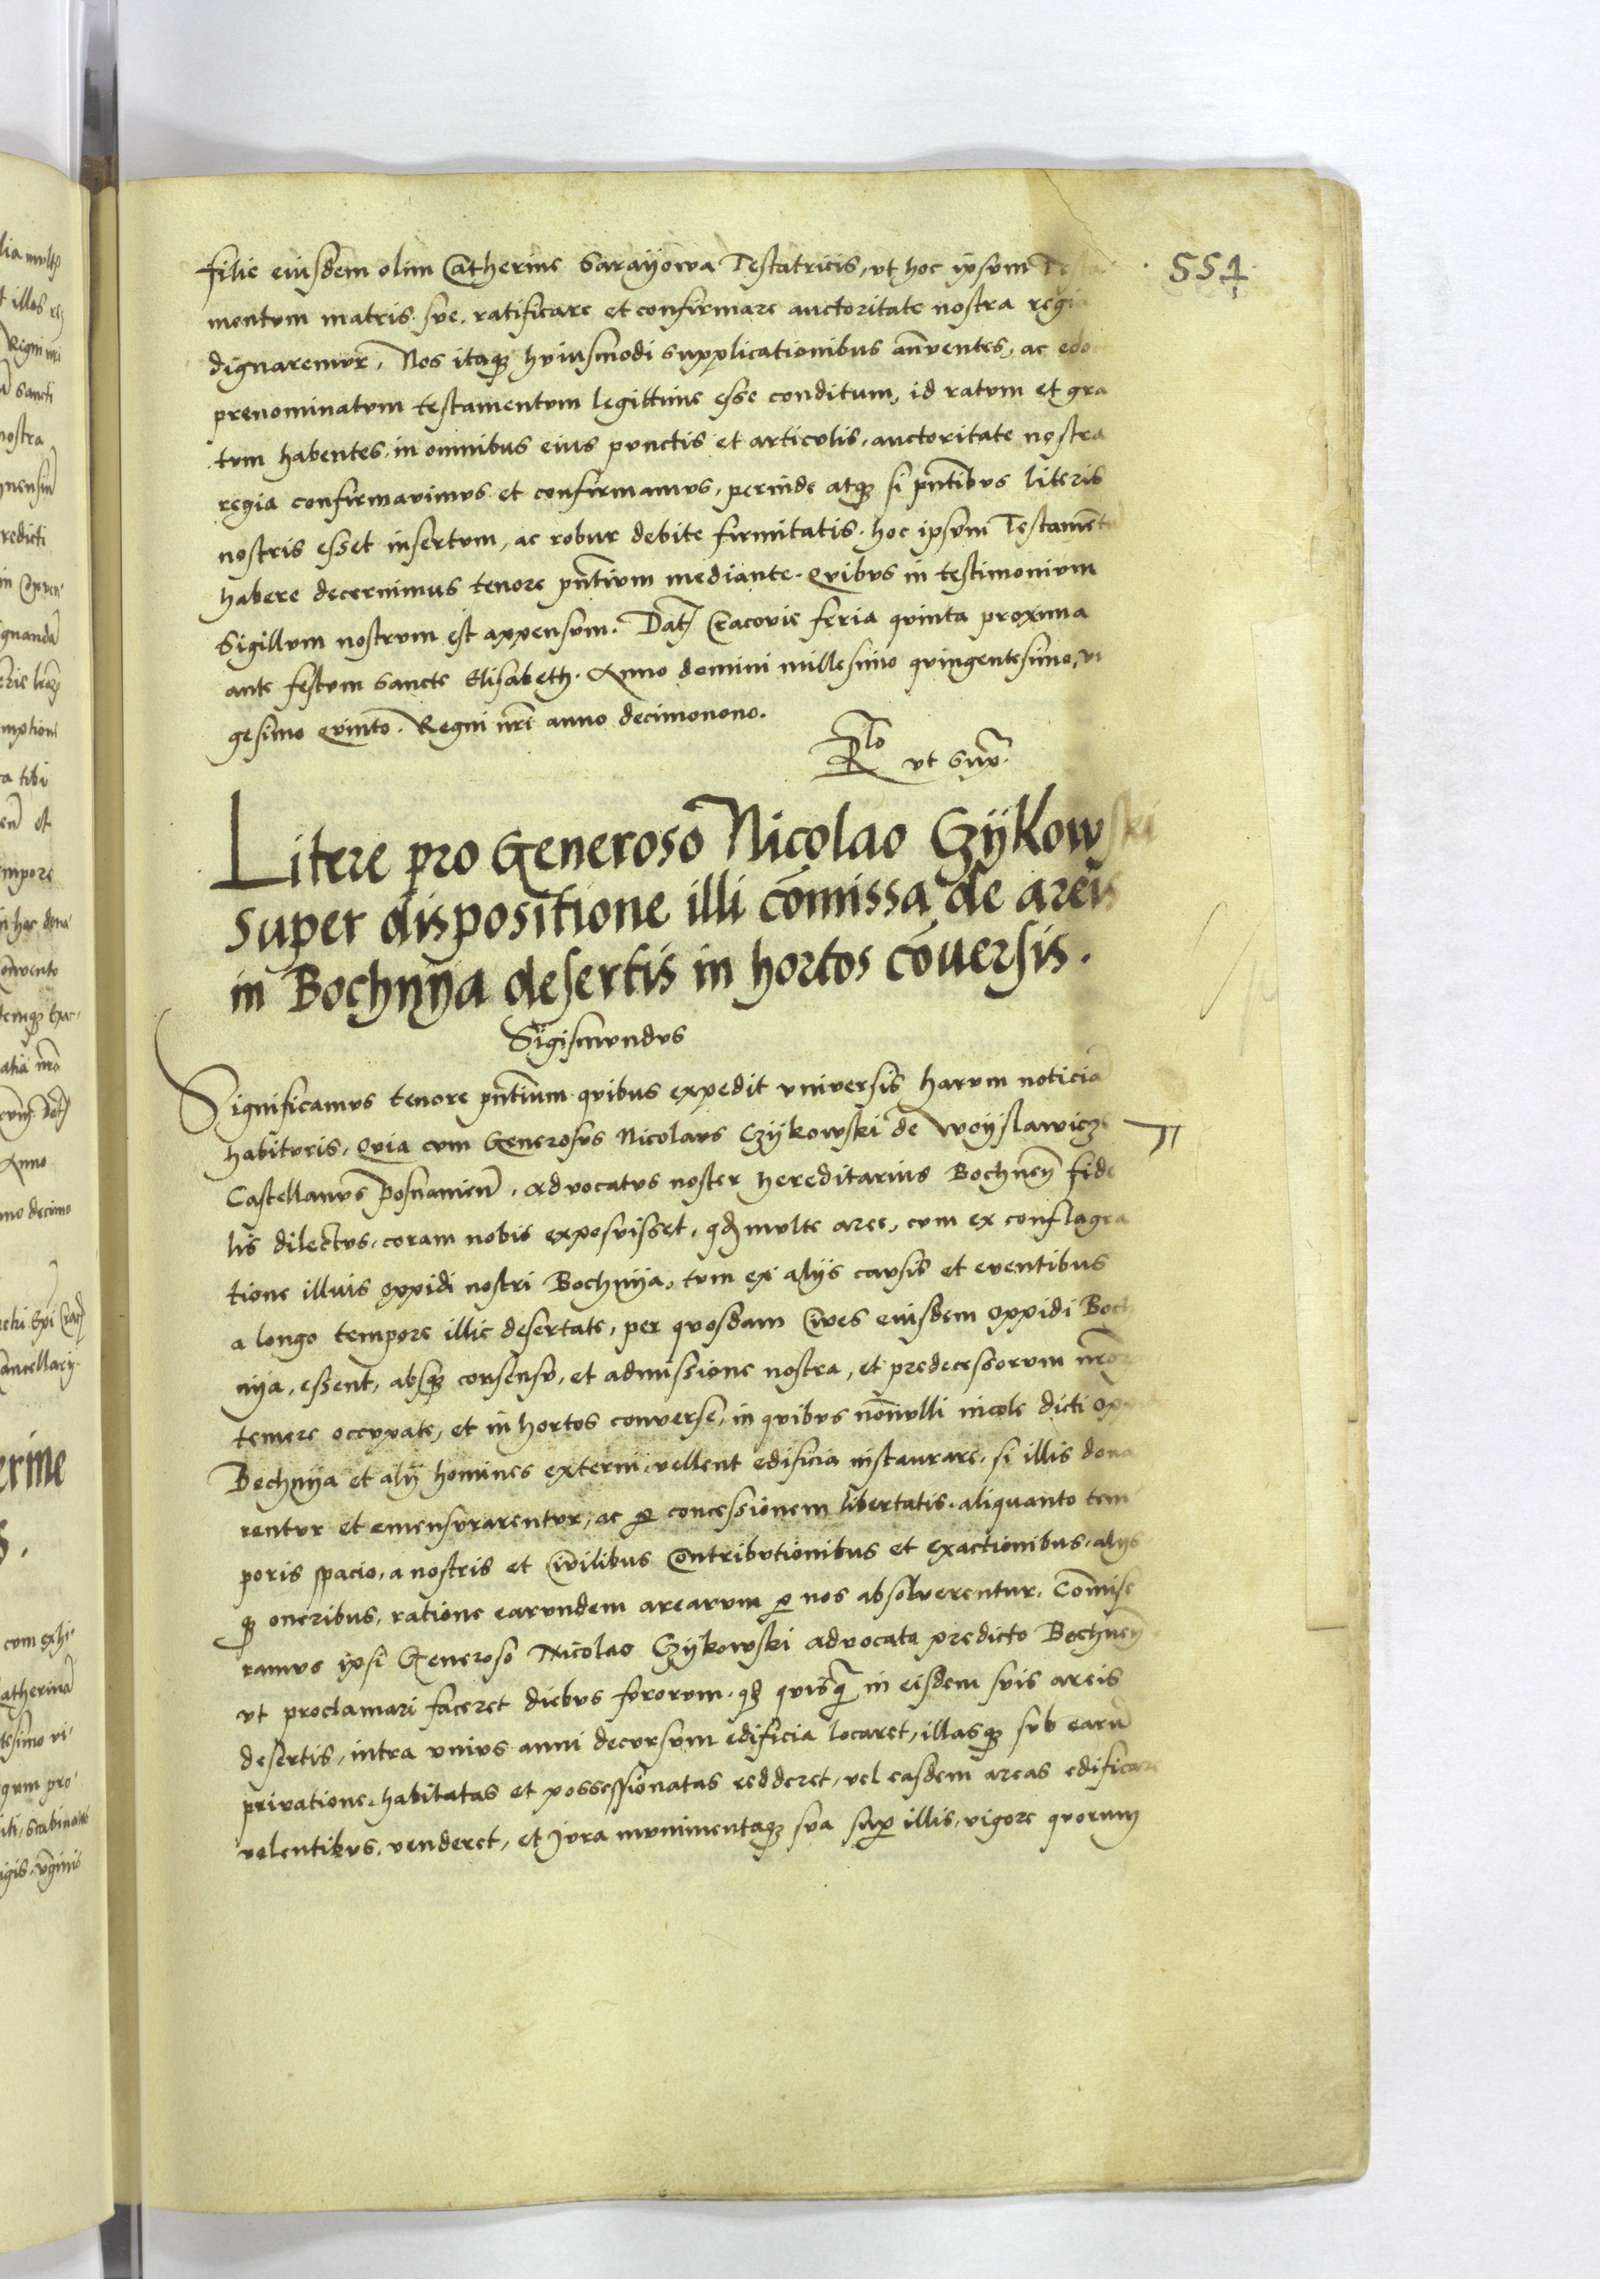 554
filie eiusdem olim Catherine Sarayowa Testatricis, vt hoc ipsvm Testa
mentvm matris sve, ratificare et confirmare auctoritate nostra regia
dignaremvr, Nos itaq3 hviusmodi supplicationibus an̄ventes, ac edoc
prenominatvm testamentvm legittime esse conditum, id ratvm et gra
tvm habentes, in omnibus eius pvnctis et articvlis, auctoritate nostra
regia confirmavimvs et confirmamvs, perinde atq3 si pn̄tibvs literis
nostris esset insertvm, ac robur debite firmitatis hoc ipsvm Testamēt
habere decernimus tenore pn̄tivm mediante. Qvibvs in testimonivm
Sigillvm nostrvm est appensvm. Dat Cracovie feria qvinta proxima
ante festvm sancte Elisabeth. Anno domini millesimo qvingentesimo, vi
gesimo Qvinto. Regni nrī anno decimonono.
R̄lo vt sup̄.
Litere pro Generoso Nicolao Czÿkowski
super dispositione illi cōmissa de areis
in Bochnÿa desertis in hortos cōuersis.
Sigismvndvs
Significamvs tenore pn̄tium qvibus expedit vniversis harvm noticiā
habitvris, Qvia cvm Generosvs Nicolavs Czÿkowski de Woÿslawicze
Castellanvs Posnanień, Advocatvs noster Hereditarius Bochneń fide
lis dilectvs, coram nobis exposvisset, qd mvlte aree, cvm ex conflagra
tione illivis oppidi nostri Bochnÿa, tvm ex alÿs cavsis et eventibus
a longo tempore illic desertate, per qvosdam Cives eivsdem oppidi Boch
nÿa, essent, absq3 consensv, et admissione nostra, et predecessorvm nr̄or
temere occvpate, et in hortos converse, in qvibvs nōnvlli incole dicti opp
Bochnÿa et alÿ homines externi, vellent edificia instavrare, si illis dona
rentvr et emensvrarentvr, ac p̱ concessionem libertatis, aliquanto tem
poris spacio, a nostris et Civilibus Contribvtionibus et exactionibus, alÿs
q3 oneribus, ratione earvndem arearvm p̱ nos absolverentur. Cōmise
ramvs ipsi Generoso Nicolao Czÿkowski advocato predicto Bochneń
vt proclamari faceret diebvs fororvm, qd qvisq̄ in eisdem svis areis
desertis, intra vnivs anni decvrsvm edificia locaret, illasq3 svb earū
privatione, habitatas et possessionatas redderet, vel easdem areas edificare
volentibvs, venderet, et Jvra mvnimentaq3 sva sup̱ illis, vigore qvorum